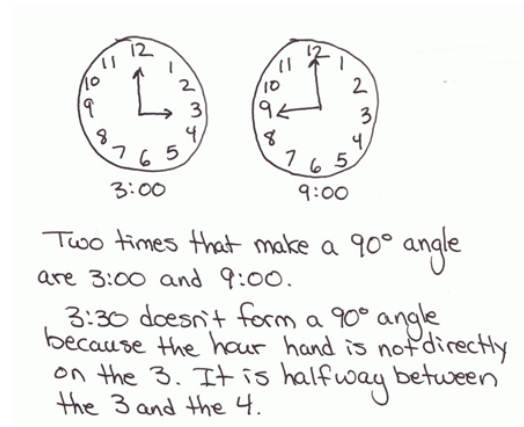 11 12 1
10 2
9 3
8 4
7 6 5
3:00
11 12 1
10 2
9 3
8 4
7 6 5
9:00
Two times that make a 90° angle
are 3:00 and 9:00.
3:30 doesn't form a 90° angle
because the hour hand is not directly
on the 3. It is halfway between
the 3 and the 4.